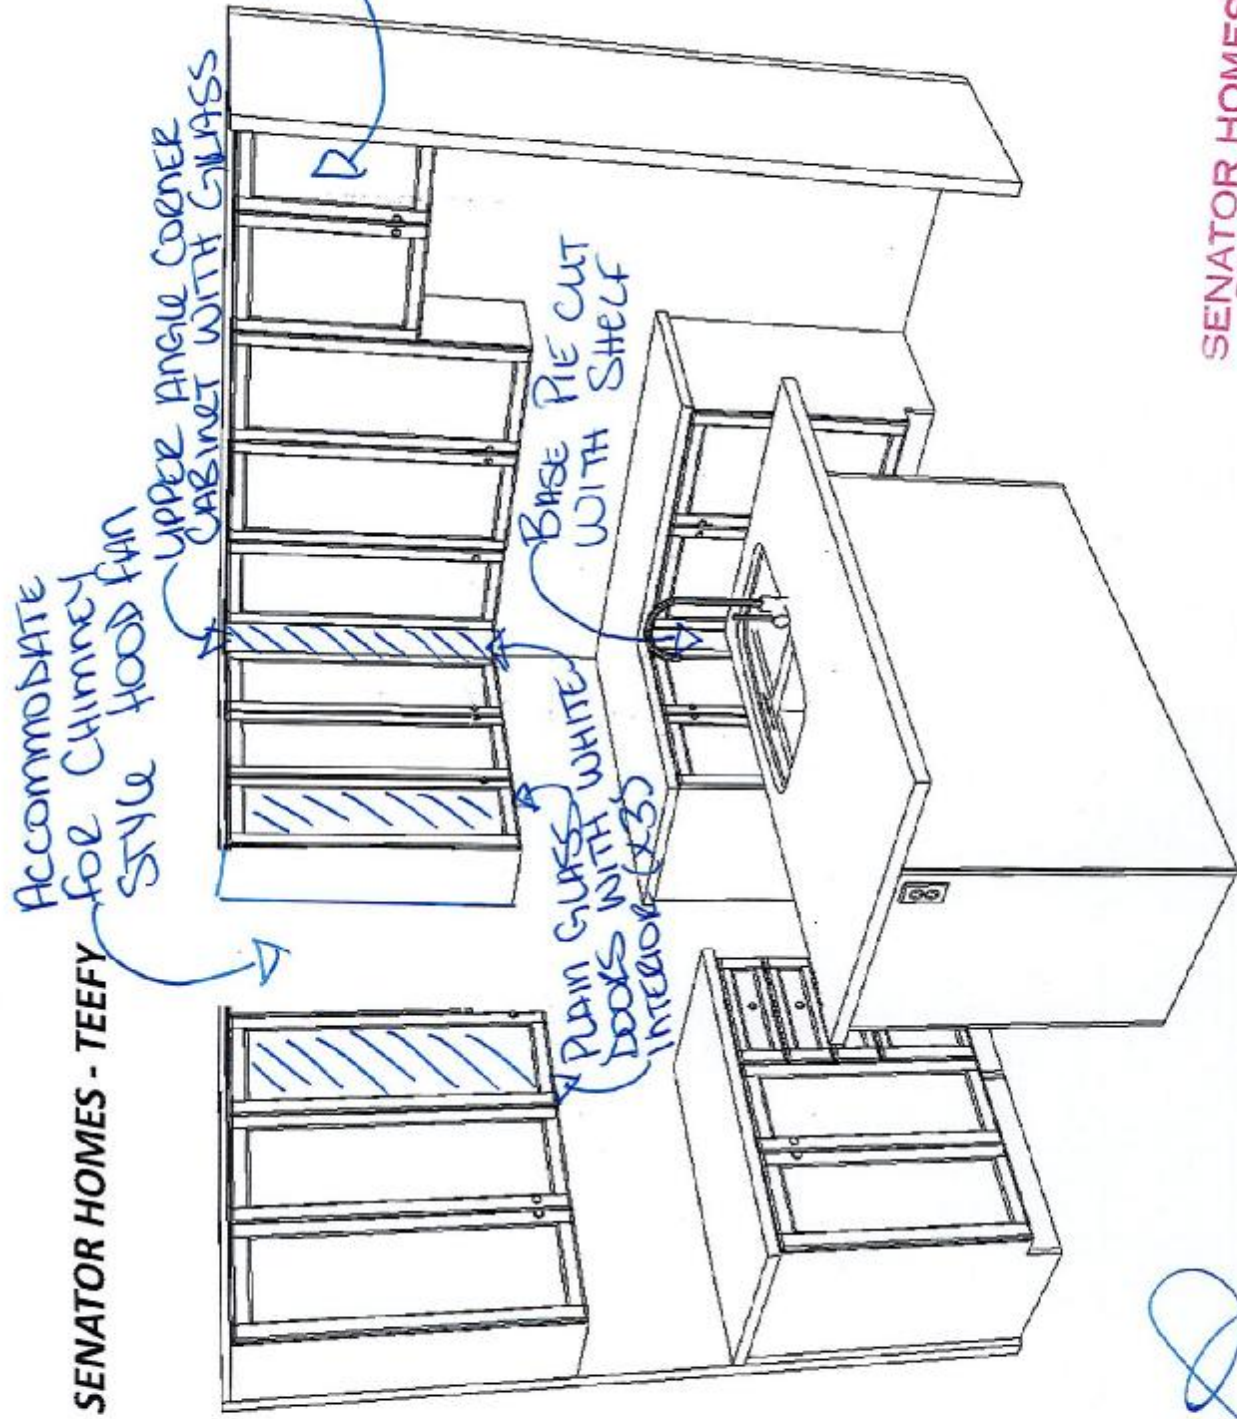 SENATOR HOMES - TEEFY
ACCOMMODATE
FOR CHIMNEY
STYLE HOOD FAN
UPPER ANGLE CORNER
CABINET WITH GLASS
BASE PIE CUT
WITH SHELF
PLAIN GLASS
DOORS WITH WHITE
INTERIOR (X3)
SENATOR HOMES